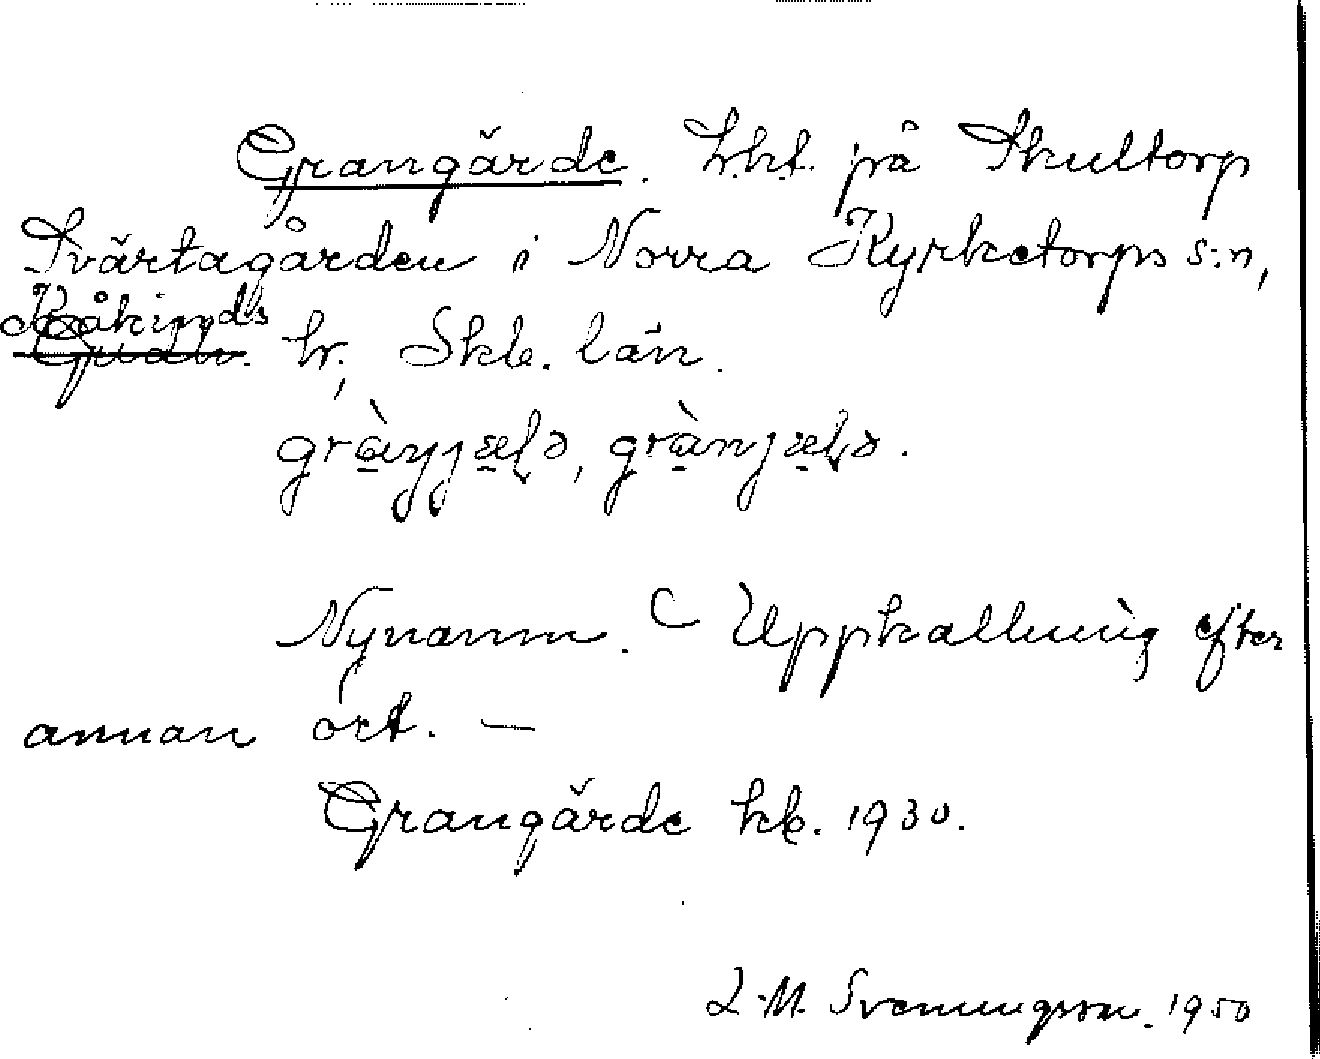 Grangärde. lht. på Skultorp
Svärtagården i Norra Kyrketorps s:n,
Kåkinds
hr, Skb. län.
Nynamn. Uppkallning efter
annan ort. —
Grangärde kb. 1930.
L.M. Svenungsson. 1950